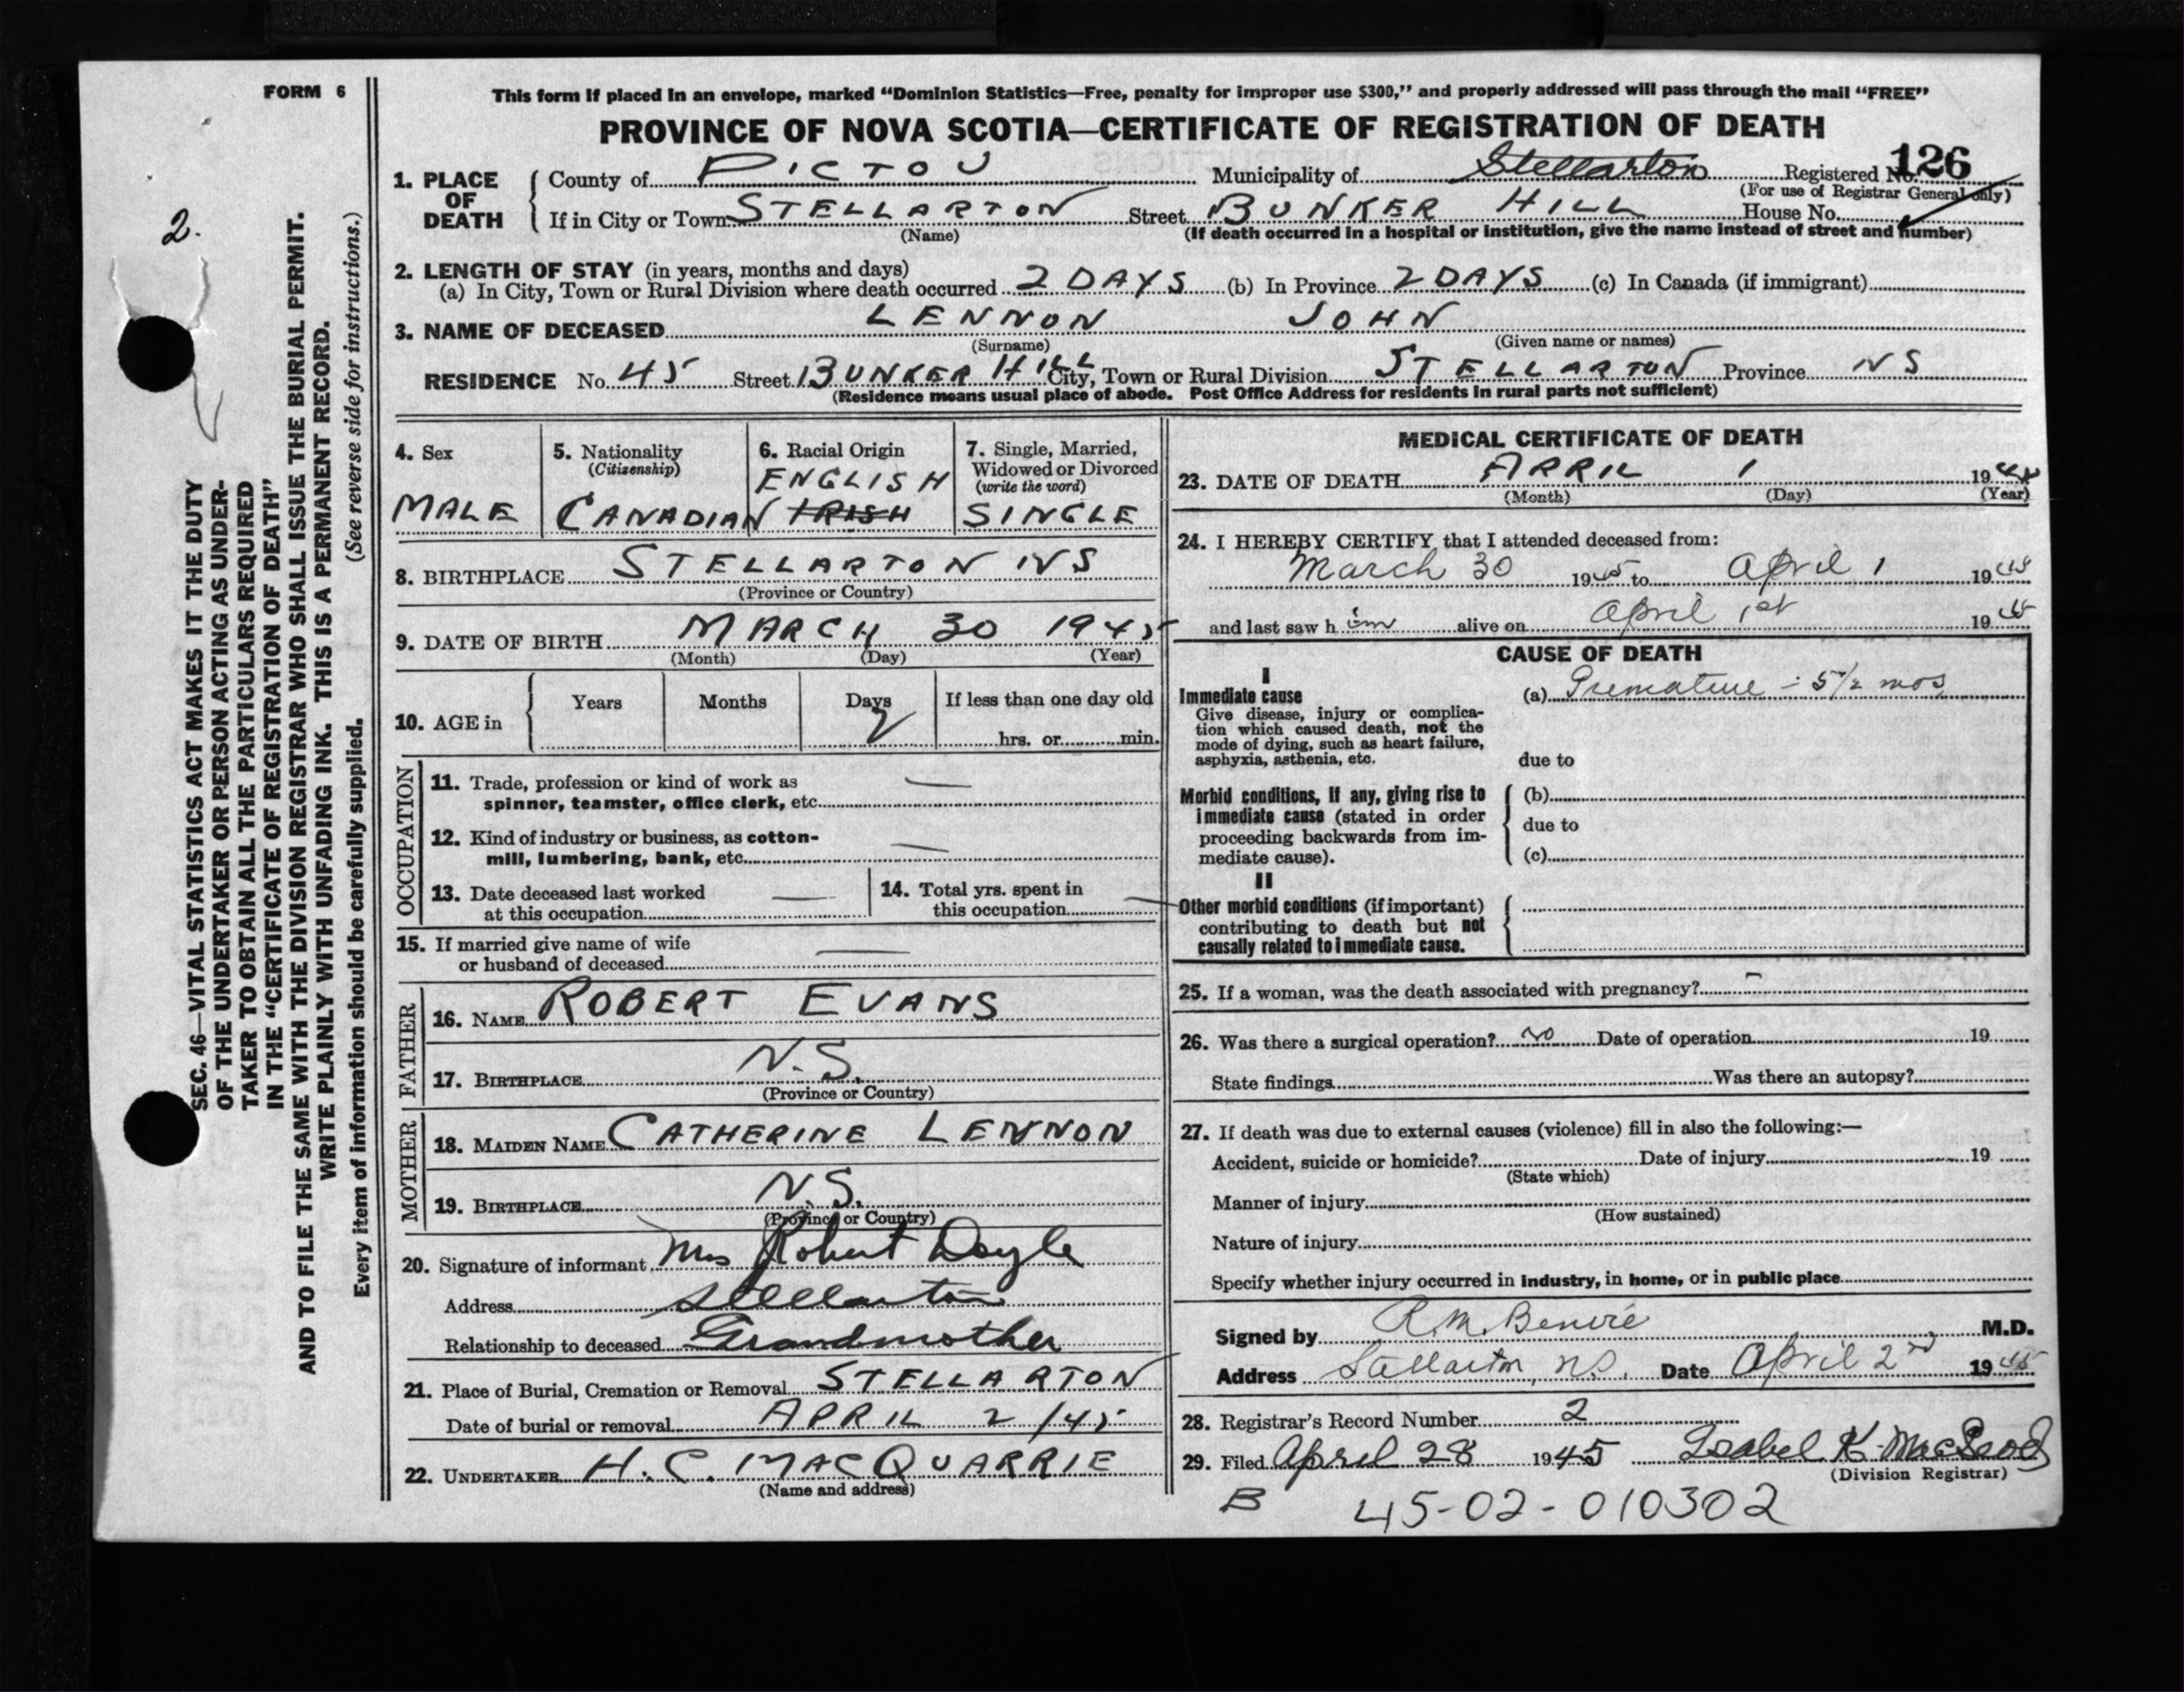 FORM 6
This form if placed in an envelope, marked "Dominion Statistics—Free, penalty for improper use $300," and properly addressed will pass through the mail "FREE"
PROVINCE OF NOVA SCOTIA—CERTIFICATE OF REGISTRATION OF DEATH
2.
SEC. 46—VITAL STATISTICS ACT MAKES IT THE DUTY
OF THE UNDERTAKER OR PERSON ACTING AS UNDER-
TAKER TO OBTAIN ALL THE PARTICULARS REQUIRED
IN THE "CERTIFICATE OF REGISTRATION OF DEATH"
AND TO FILE THE SAME WITH THE DIVISION REGISTRAR WHO SHALL ISSUE THE BURIAL PERMIT.
WRITE PLAINLY WITH UNFADING INK. THIS IS A PERMANENT RECORD.
Every item of information should be carefully supplied. (See reverse side for instructions.)
1. PLACE OF DEATH
County of PICTOU Municipality of Stellarton Registered No. 126
(For use of Registrar General only)
If in City or Town STELLARTON Street BUNKER HILL House No.
(Name) (If death occurred in a hospital or institution, give the name instead of street and number)
2. LENGTH OF STAY (in years, months and days)
(a) In City, Town or Rural Division where death occurred 2 DAYS (b) In Province 2 DAYS (c) In Canada (if immigrant)
3. NAME OF DECEASED LENNON JOHN
(Surname) (Given name or names)
RESIDENCE No. 45 Street BUNKER HILL City, Town or Rural Division STELLARTON Province NS
(Residence means usual place of abode. Post Office Address for residents in rural parts not sufficient)
4. Sex
MALE
5. Nationality
(Citizenship)
CANADIAN
6. Racial Origin
ENGLISH
IRISH
7. Single, Married,
Widowed or Divorced
(write the word)
SINGLE
8. BIRTHPLACE STELLARTON NS
(Province or Country)
9. DATE OF BIRTH MARCH 30 1945
(Month) (Day) (Year)
10. AGE in
Years Months Days If less than one day old
2 hrs. or min.
OCCUPATION
11. Trade, profession or kind of work as
spinner, teamster, office clerk, etc. —
12. Kind of industry or business, as cotton-
mill, lumbering, bank, etc. —
13. Date deceased last worked
at this occupation —
14. Total yrs. spent in
this occupation —
15. If married give name of wife
or husband of deceased —
FATHER
16. NAME ROBERT EVANS
17. BIRTHPLACE N.S.
(Province or Country)
MOTHER
18. MAIDEN NAME CATHERINE LENNON
19. BIRTHPLACE N.S.
(Province or Country)
20. Signature of informant Mrs Robert Doyle
Address Stellarton
Relationship to deceased Grandmother
21. Place of Burial, Cremation or Removal STELLARTON
Date of burial or removal APRIL 2/45
22. UNDERTAKER H. C. MACQUARRIE
(Name and address)
MEDICAL CERTIFICATE OF DEATH
23. DATE OF DEATH APRIL 1 1945
(Month) (Day) (Year)
24. I HEREBY CERTIFY that I attended deceased from:
March 30 1945 to April 1 1945
and last saw him alive on April 1st 1945
CAUSE OF DEATH
I
Immediate cause
Give disease, injury or complica-
tion which caused death, not the
mode of dying, such as heart failure,
asphyxia, asthenia, etc.
(a) Premature - 5 1/2 mos
due to
Morbid conditions, if any, giving rise to
immediate cause (stated in order
proceeding backwards from im-
mediate cause).
(b)
due to
(c)
II
Other morbid conditions (if important)
contributing to death but not
causally related to immediate cause.
25. If a woman, was the death associated with pregnancy? -
26. Was there a surgical operation? no Date of operation 19
State findings Was there an autopsy?
27. If death was due to external causes (violence) fill in also the following:—
Accident, suicide or homicide? Date of injury 19
(State which)
Manner of injury
(How sustained)
Nature of injury
Specify whether injury occurred in industry, in home, or in public place
Signed by R. M. Benvie M.D.
Address Stellarton, N.S. Date April 2nd 1945
28. Registrar's Record Number 2
29. Filed April 28 1945 Isabel K. MacLeod
(Division Registrar)
B 45-02-010302